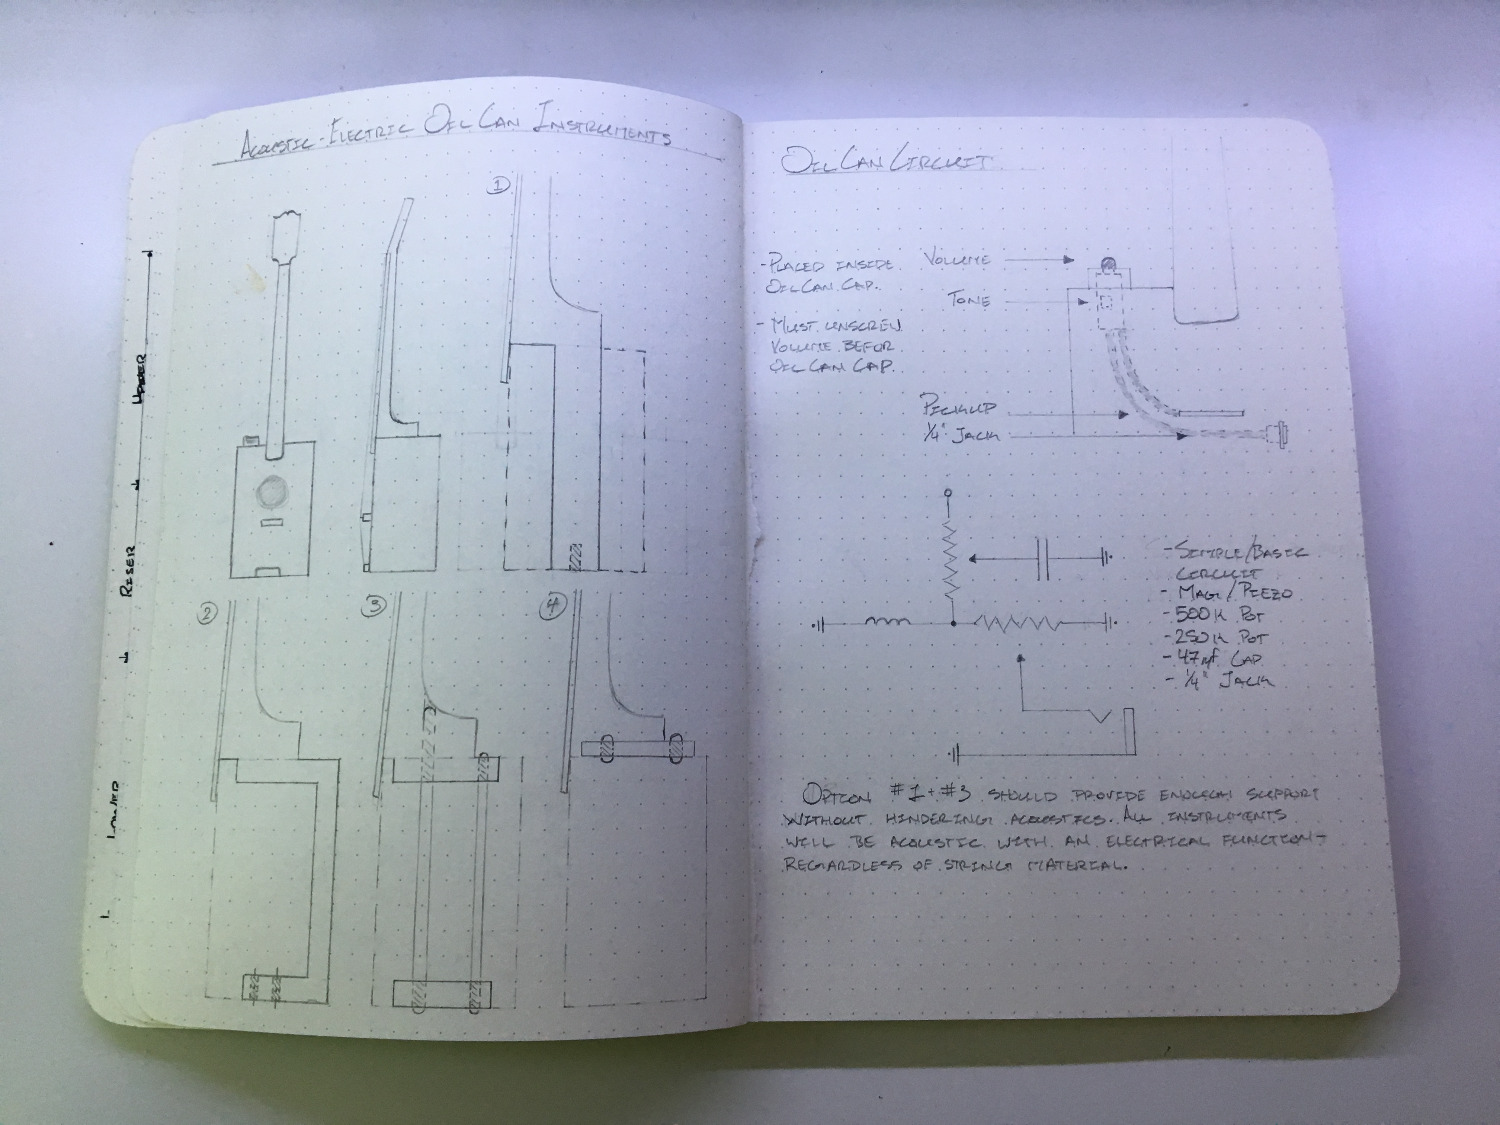 ACOUSTIC-ELECTRIC OIL CAN INSTRUMENTS
1
2
3
4
UPPER
RISER
LOWER
OIL CAN CIRCUIT
- PLACED INSIDE
OIL CAN CAP.
- MUST UNSCREW
VOLUME BEFOR
OIL CAN CAP.
VOLUME
TONE
PICKUP
1/4" JACK
- SIMPLE/BASIC
CIRCUIT
- MAG/PIEZO
- 500K POT
- 250K POT
- 47nf CAP
- 1/4" JACK
OPTION #1 + #3 SHOULD PROVIDE ENOUGH SUPPORT
WITHOUT HINDERING ACOUSTICS. ALL INSTRUMENTS
WILL BE ACOUSTIC WITH AN ELECTRICAL FUNCTION-
REGARDLESS OF STRING MATERIAL.